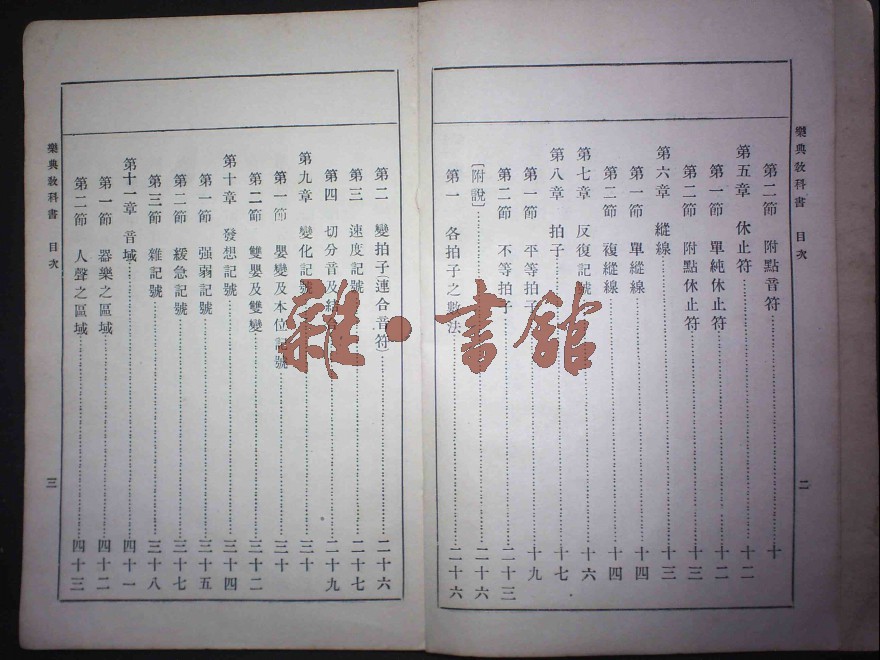 樂典敎科書 目次
第二節 附點音符 十
第五章 休止符 十二
第一節 單純休止符 十二
第二節 附點休止符 十三
第六章 縱線 十三
第一節 單縱線 十四
第二節 複縱線 十四
第七章 反復記號 十六
第八章 拍子 十七
第一節 平等拍子 十九
第二節 不等拍子 二十三
〔附說〕 二十六
第一 各拍子之數法 二十六
二
第二 變拍子(連合音符) 二十六
第三 速度記號 二十七
第四 切分音及結 二十九
第九章 變化記號 三十
第一節 嬰變及本位記號 三十
第二節 雙嬰及雙變 三十二
第十章 發想記號 三十四
第一節 强弱記號 三十五
第二節 緩急記號 三十七
第三節 雜記號 三十八
第十一章 音域 四十一
第一節 器樂之區域 四十二
第二節 人聲之區域 四十三
樂典敎科書 目次
三
雜·書館